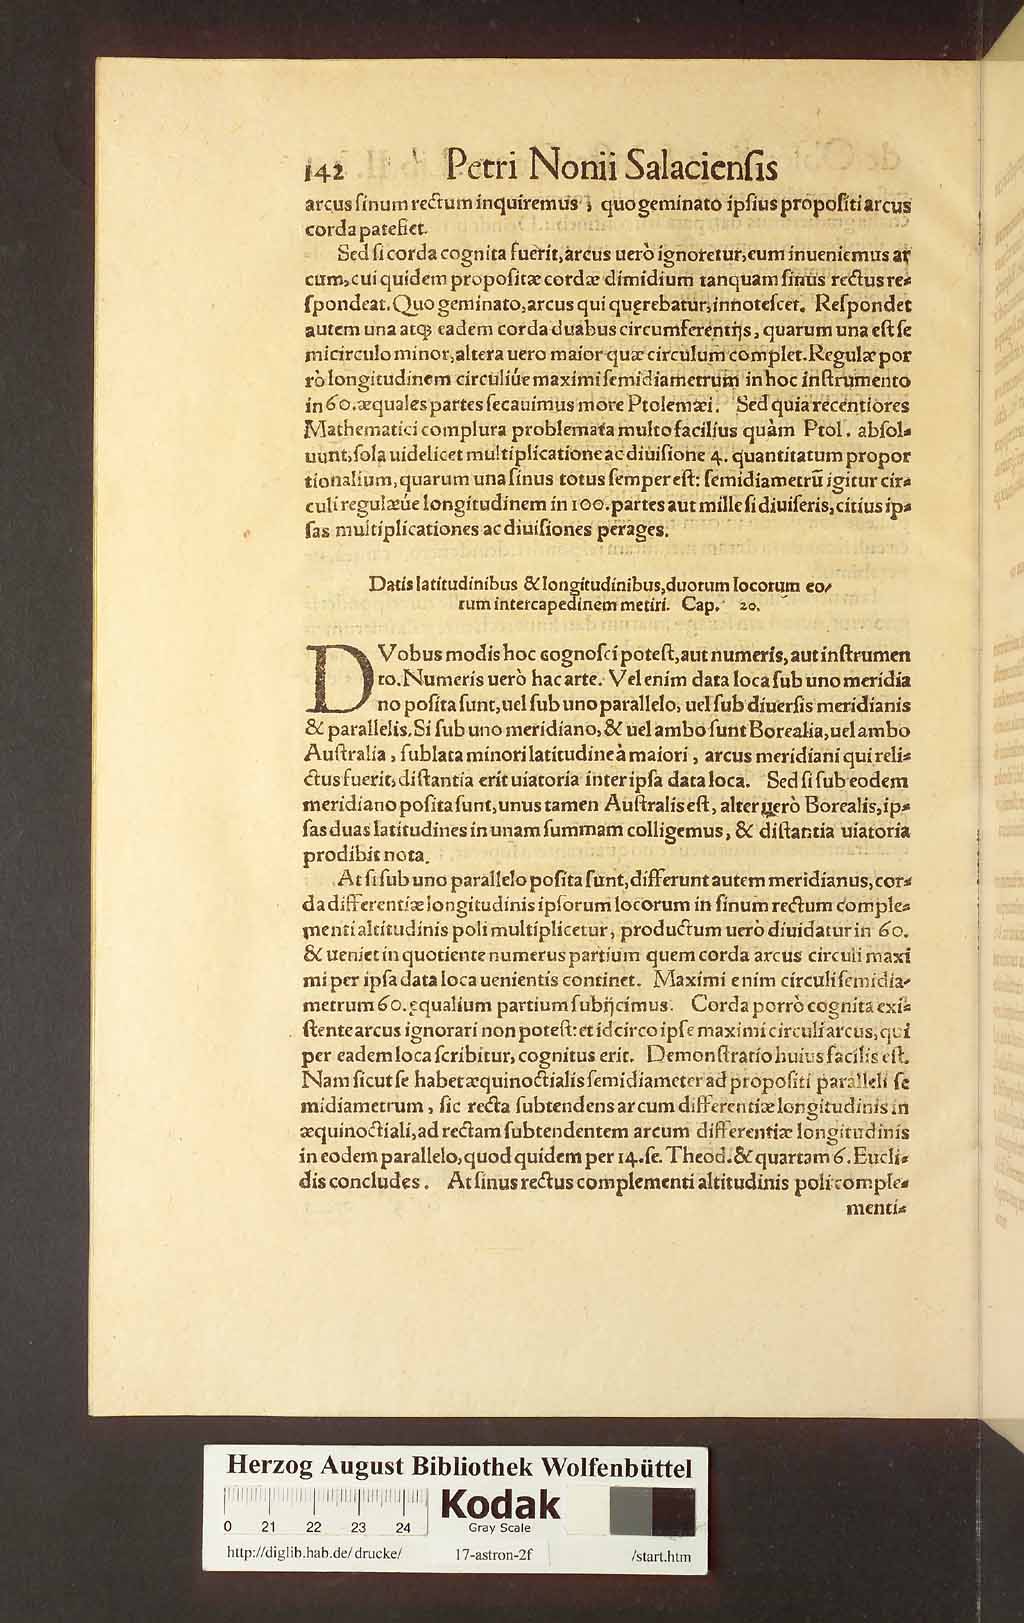 142 Petri Nonii Salaciensis
arcus sinum rectum inquiremus; quo geminato ipsius propositi arcus
corda patefiet.
Sed si corda cognita fuerit, arcus uerò ignoretur, eum inueniemus ar
cum, cui quidem propositæ cordæ dimidium tanquam sinus rectus re⸗
spondeat. Quo geminato, arcus qui quęrebatur, innotescet. Respondet
autem una atq; eadem corda duabus circumferentijs, quarum una est se
micirculo minor, altera uero maior quæ circulum complet. Regulæ por
rò longitudinem circuliúe maximi semidiametrum in hoc instrumento
in 60. æquales partes secauimus more Ptolemæi. Sed quia recentiores
Mathematici complura problemata multo facilius quàm Ptol. absol⸗
uunt, sola uidelicet multiplicatione ac diuisione 4. quantitatum propor
tionalium, quarum una sinus totus semper est: semidiametrũ igitur cir⸗
culi regulæúe longitudinem in 100. partes aut mille si diuiseris, citius ip⸗
sas multiplicationes ac diuisiones perages.
Datis latitudinibus & longitudinibus, duorum locorum eo/
rum intercapedinem metiri. Cap. 20.
DVobus modis hoc cognosci potest, aut numeris, aut instrumen
to. Numeris uerò hac arte. Vel enim data loca sub uno meridia
no posita sunt, uel sub uno parallelo, uel sub diuersis meridianis
& parallelis. Si sub uno meridiano, & uel ambo sunt Borealia, uel ambo
Australia, sublata minori latitudine à maiori, arcus meridiani qui reli⸗
ctus fuerit, distantia erit uiatoria inter ipsa data loca. Sed si sub eodem
meridiano posita sunt, unus tamen Australis est, alter uerò Borealis, ip⸗
sas duas latitudines in unam summam colligemus, & distantia uiatoria
prodibit nota.
At si sub uno parallelo posita sunt, differunt autem meridianus, cor⸗
da differentiæ longitudinis ipsorum locorum in sinum rectum comple⸗
menti altitudinis poli multiplicetur, productum uerò diuidatur in 60.
& ueniet in quotiente numerus partium quem corda arcus circuli maxi
mi per ipsa data loca uenientis continet. Maximi enim circuli semidia⸗
metrum 60. ęqualium partium subijcimus. Corda porrò cognita exi⸗
stente arcus ignorari non potest: et idcirco ipse maximi circuli arcus, qui
per eadem loca scribitur, cognitus erit. Demonstratio huius facilis est.
Nam sicut se habet æquinoctialis semidiameter ad propositi paralleli se
midiametrum, sic recta subtendens arcum differentiæ longitudinis in
æquinoctiali, ad rectam subtendentem arcum differentiæ longitudinis
in eodem parallelo, quod quidem per 14. se. Theod. & quartam 6. Eucli⸗
dis concludes. At sinus rectus complementi altitudinis poli comple⸗
menti⸗
Herzog August Bibliothek Wolfenbüttel
0 21 22 23 24
Kodak
Gray Scale
http://diglib.hab.de/drucke/ 17-astron-2f /start.htm